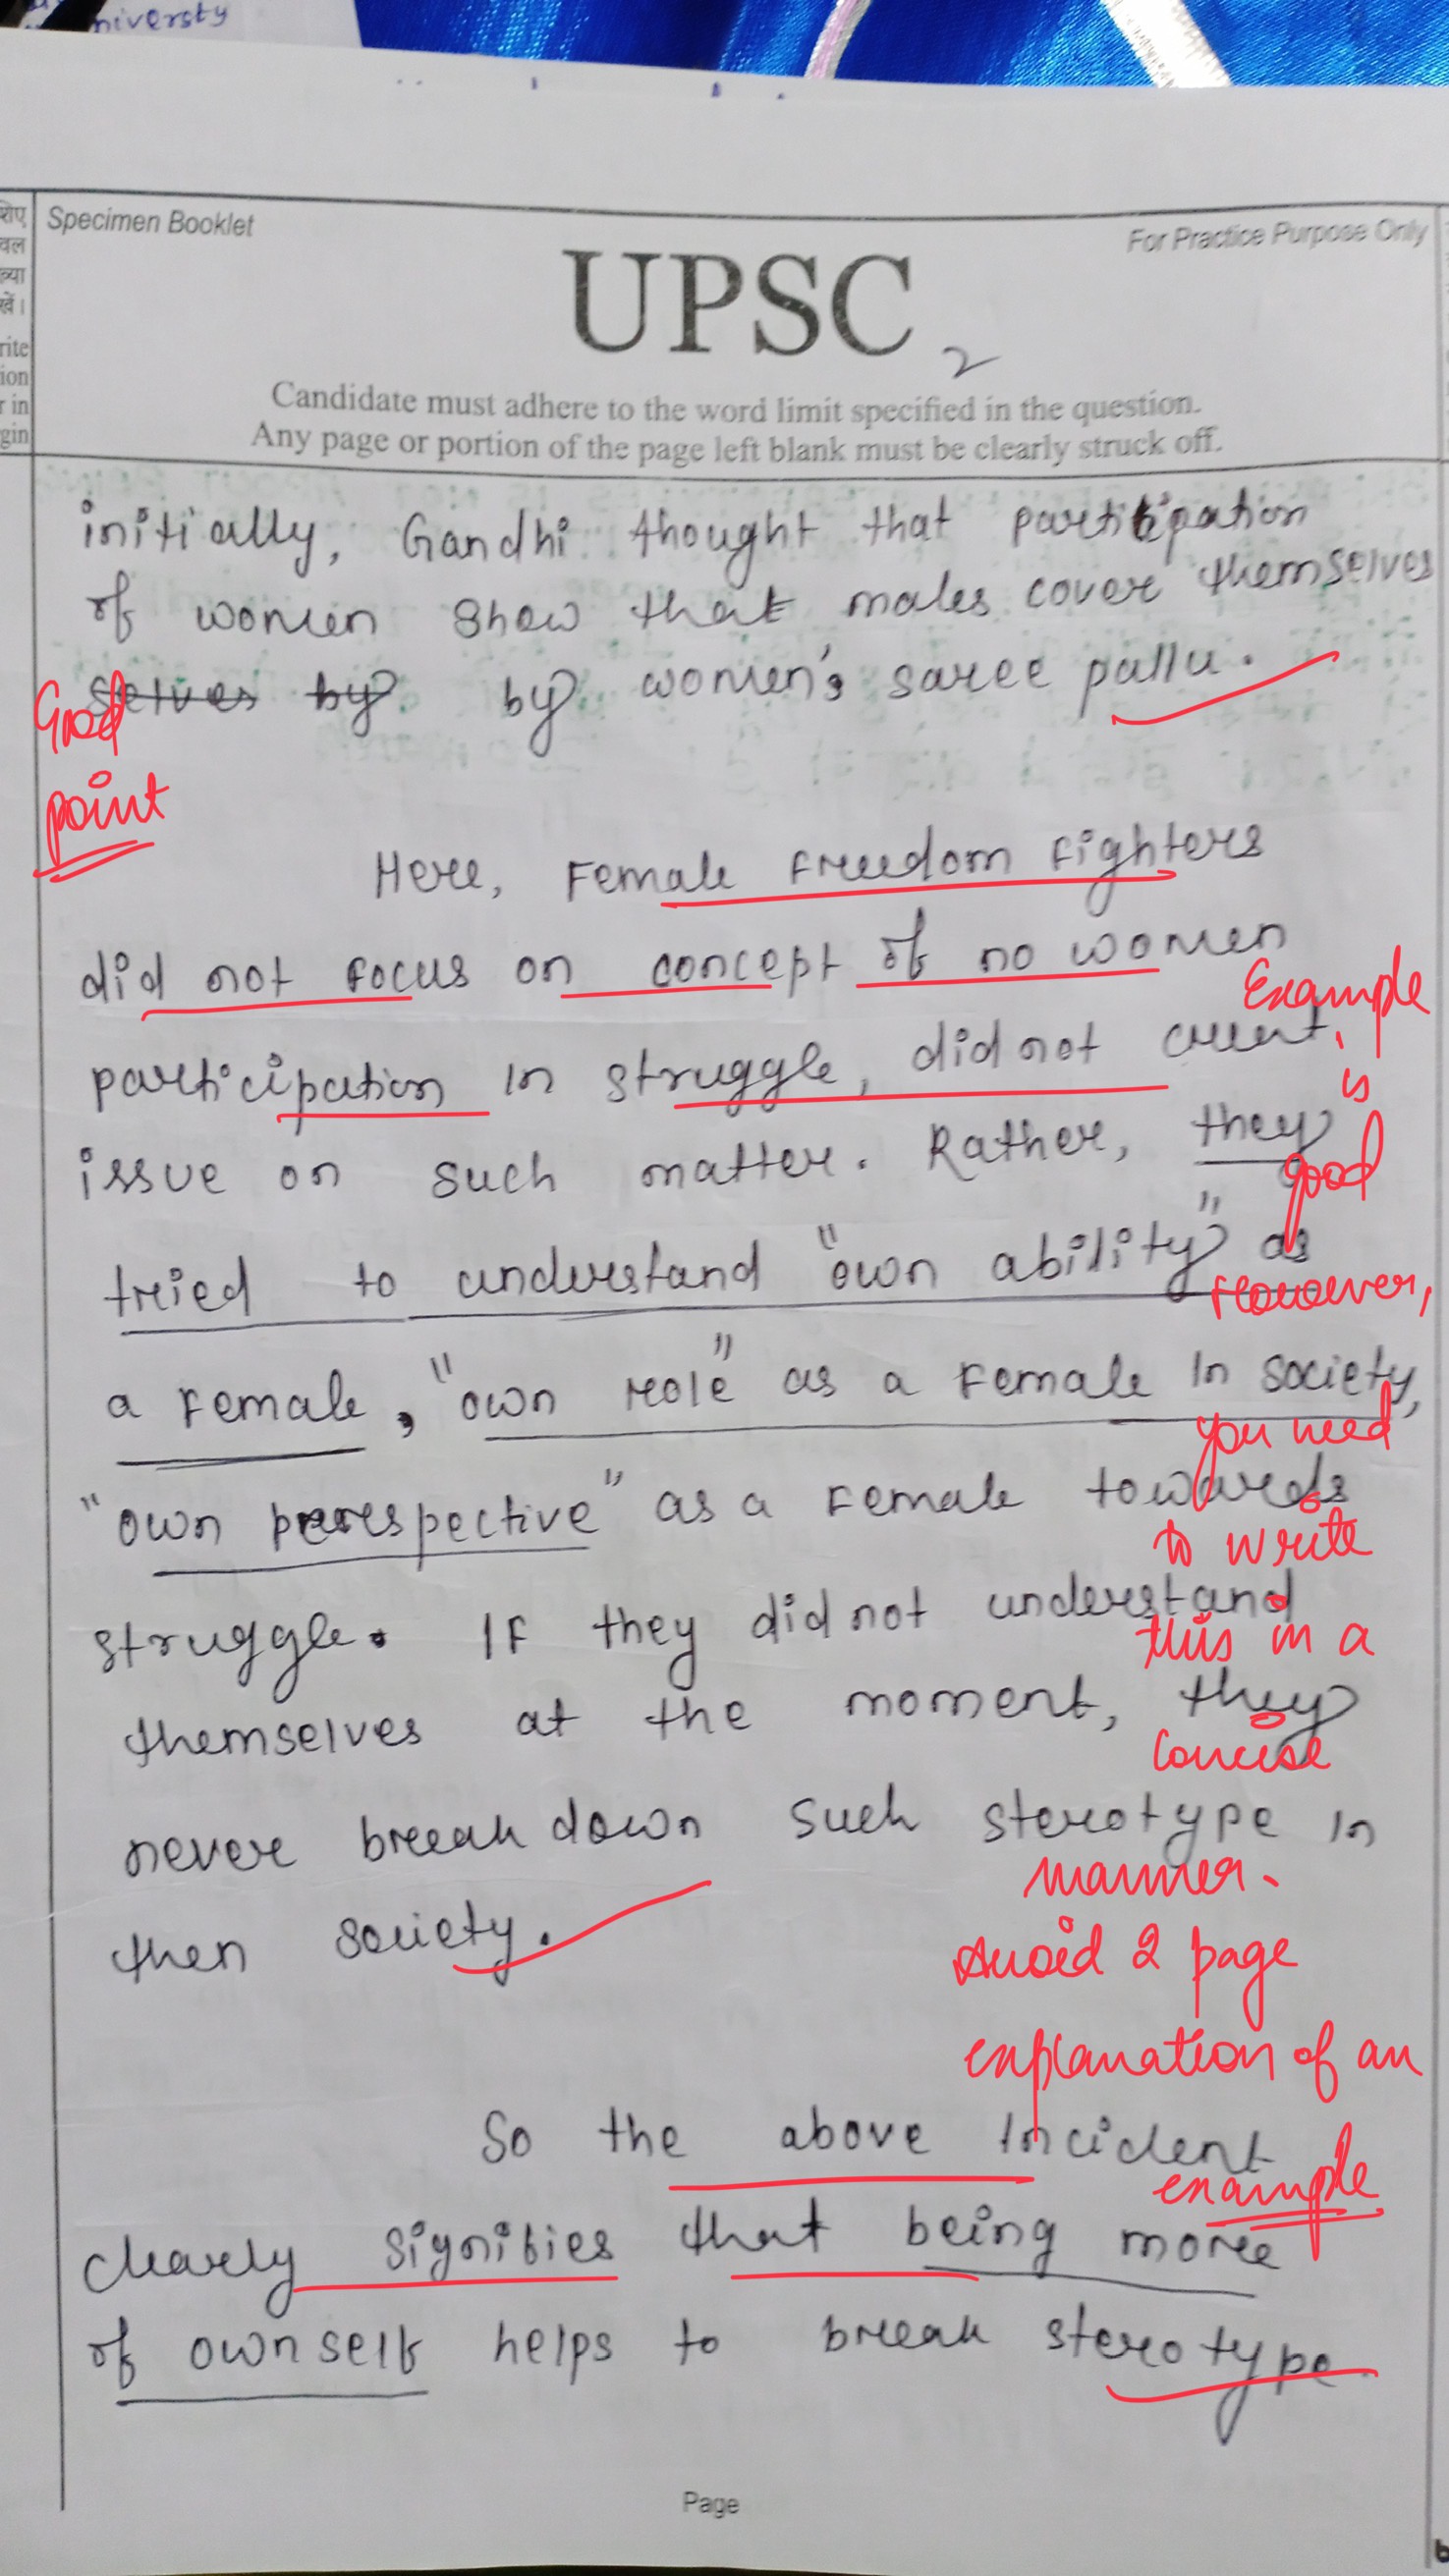 niversty
शेए
वल
ख्या
खें।
rite
ion
r in
gin
Specimen Booklet
For Practice Purpose Only
UPSC
2
Candidate must adhere to the word limit specified in the question.
Any page or portion of the page left blank must be clearly struck off.
initially, Gandhi thought that participation
of women show that males cover themselves
selves by by women's saree pallu.
Good
point
Here, Female Freedom Fighters
did not focus on concept of no women
participation in struggle, did not creat
issue on such matter. Rather, they
tried to understand "own ability" as
a Female, "own role" as a Female in society,
"own perespective" as a Female towards
struggle. If they did not understand
themselves at the moment, they
never break down such sterotype in
then society.
Example
is
good
However,
you need
to write
this in a
concise
manner.
Avoid 2 page
explanation of an
example
So the above incident
clearly signifies that being more
of ownself helps to break sterotype.
Page